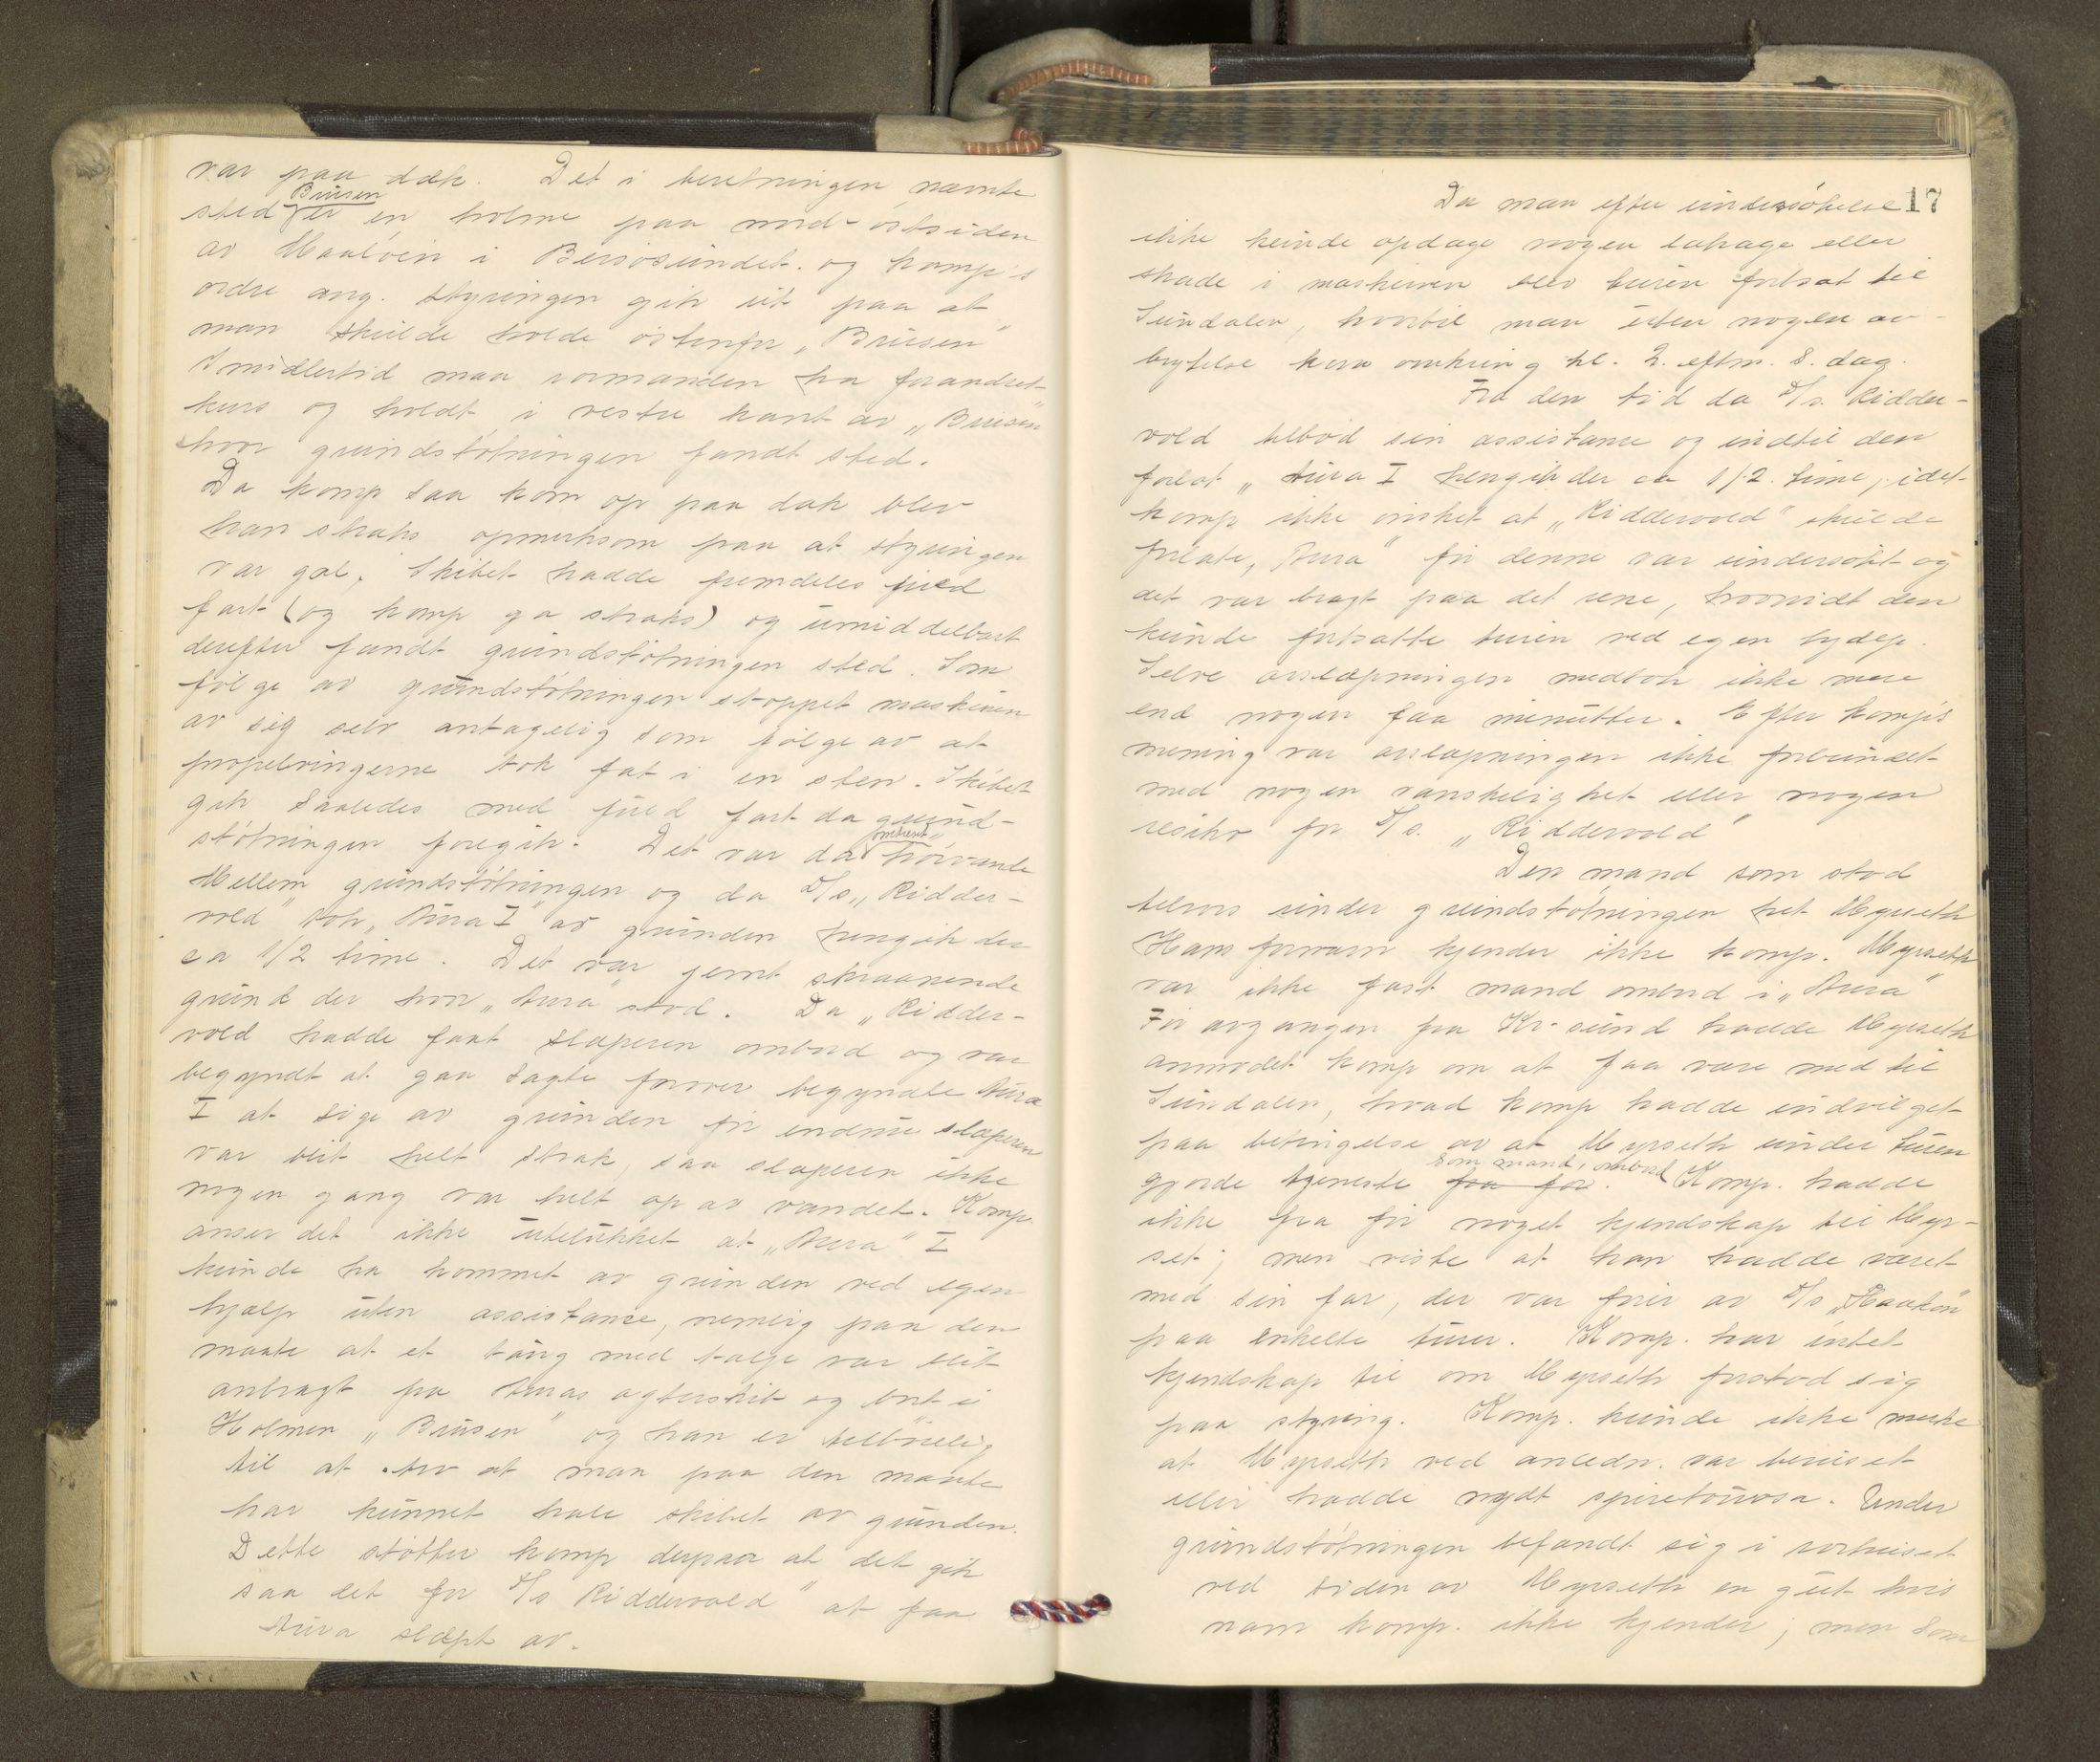 var paa dæk. Det i beretningen nævnte
sted Brusen er en holme paa nord-østsiden
av Maaløen i Bersøsundet. og komp's
ordre ang. styringen gik ut paa at
man skulde holde østenfor "Brusen"
Imidlertid maa vormanden ha forandret
kurs og holdt i vestre kant av "Brusen"
hvor grundstøtningen fandt sted.
Da komp saa kom op paa dæk blev
han straks opmerksom paa at styringen
var gal, Skibet hadde fremdeles fuld
fart (og komp ga straks) og umiddelbart
derefter fandt grundstøtningen sted. Som
følge av grundstøtningen stoppet maskinen
av sig selv antagelig som følge av at
propelvingerne tok fat i en sten. Skibet
gik saaledes med fuld fart da grund-
støtningen foregik. Det var da omtrent høivande
Mellem grundstøtningen og da D/s "Ridder-
vold" tok "Aura I" av grunden hengik der
ca 1/2 time. Det var jevnt skraanende
grund der hvor "Aura" stod. Da "Ridder-
vold hadde faat slæperen ombord og var
begyndt at gaa sagte forover begyndte Aura
I at sige av grunden før endnu slæperen
var blit helt strak, saa slæperen ikke
nogen gang var helt op av vandet. Komp.
anser det ikke utelukket at "Aura" I
kunde ha kommet av grunden ved egen
hjælp uten assistance, nemlig paa den
maate at et taug med talje var blit
anbragt fra Auras agterskib og bort i
Holmen "Brusen" og han er tilbøielig
til at tro at man paa den maate
har kunnet hale skibet av grunden.
Dette støtter komp derpaa at det gik
saa let for D/s Riddervold" at faa
Aura slæpt av.
17
Da man efter undersøkelse
ikke kunde opdage nogen lækage eller
skade i maskinen blev turen fortsat til
Sundalen, hvortil man uten nogen av-
brytelse kom omkring kl. 2. eftm. s. dag.
Fra den tid da D/s. Ridder-
vold tilbød sin assistance og indtil den
forlot "Aura I hengik der ca 1/2. time, idet
komp ikke ønsket at "Riddervold" skulde
forlate, Aura" før denne var undersøkt og
det var bragt paa det rene, hvorvidt den
kunde fortsætte turen ved egen hjelp.
Selve avslæpningen medtok ikke mere
end nogen faa minutter. Efter komp's
mening var avslæpningen ikke forbundet
med nogen vanskelighet eller nogen
risiko for D/s. "Riddervold"
Den mand som stod
tilrors under grundstøtningen het Myrseth
Hans fornavn kjender ikke komp. Myrseth
var ikke fast mand ombord i "Aura"
Før avgangen fra Kr-sund hadde Myrseth
anmodet komp om at faa være med til
Sundalen, hvad komp hadde indvilget
paa betingelse av at Myrseth under turen
gjorde tjeneste fra før. som mand ombord Komp. hadde
ikke fra før noget kjendskap til Myr-
set; men viste at han hadde været
med sin far, der var fører av D/s "Haakon"
paa enkelte turer. Komp. har intet
kjendskap til om Myrseth forstod sig
paa styring. Komp. kunde ikke merke
at Myrseth ved anledn. var beruset
eller hadde nydt spirituosa. Under
grundstøtningen befandt sig i rorhuset
ved siden av Myrseth en gut hvis
navn komp. ikke kjender; men som